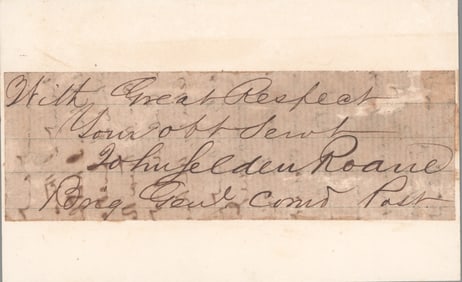 With Great Respect
Your obt Servt
John Selden Roane
Brig. Genl. Comd Post